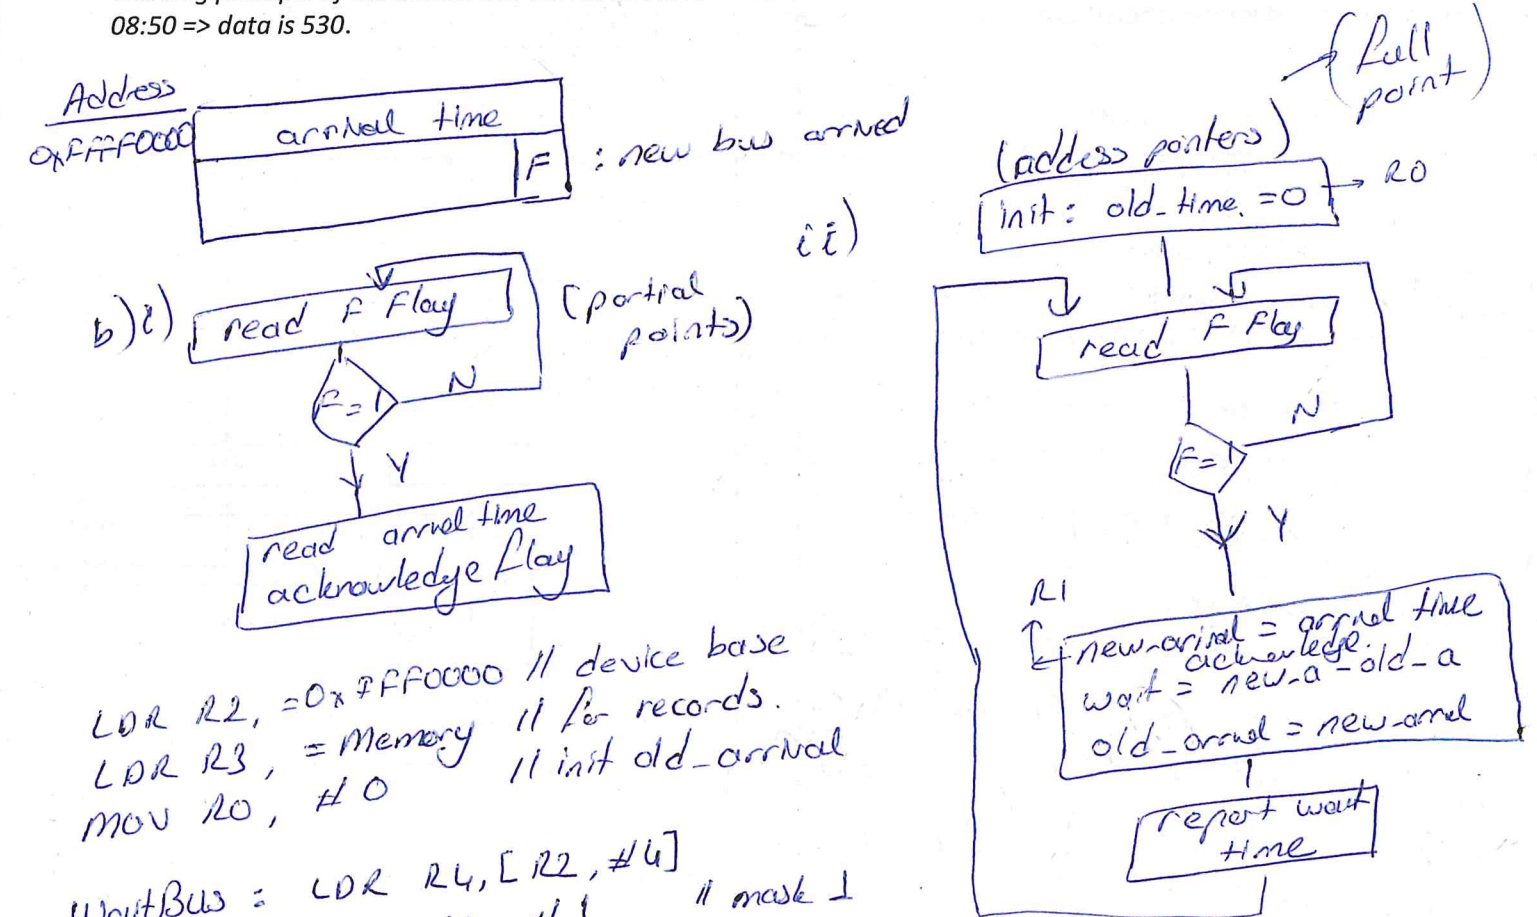 08:50 => data is 530.
Address
0xFFFF0000 arrival time
F : new bus arrived
b) i) read F Flag
(partial points)
F=1
N
Y
read arrival time
acknowledge flag
LDR R2, =0xFFF0000 // device base
LDR R3, = Memory // for records.
MOV R0, #0 // init old_arrival
WaitBus : LDR R4, [R2, #4]
#1 // mask 1
ii)
(full point)
(address pointers)
init: old_time. =0 → R0
read F Flag
F=1
N
Y
R1
new_arrival = arrival time
acknowledge.
wait = new_a - old_a
old_arrival = new_arrival
report wait
time